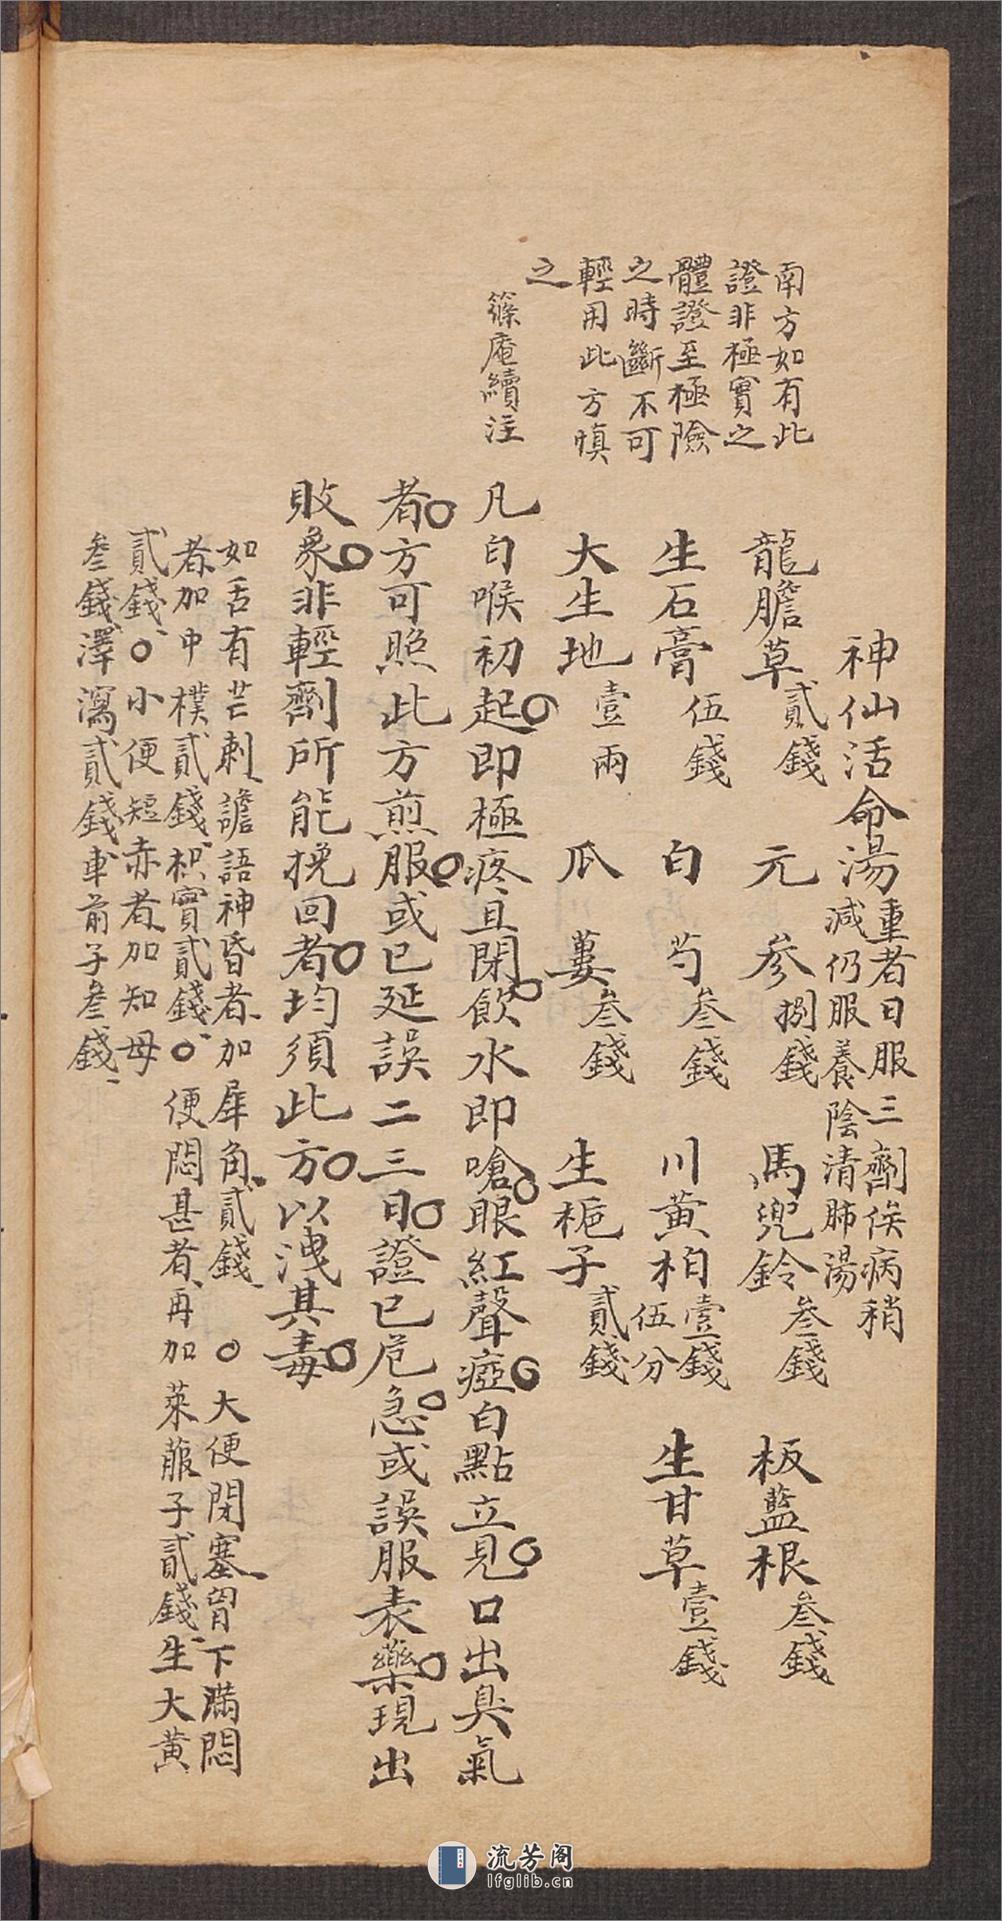 南方如有此
證非極實之
體證至極險
之時斷不可
輕用此方慎
之
篠庵續注
神仙活命湯重者日服三劑俟病稍
減仍服養陰清肺湯
龍膽草貳錢 元參捌錢 馬兜鈴叁錢 板藍根叁錢
生石膏伍錢 白芍叁錢 川黃柏壹錢伍分 生甘草壹錢
大生地壹兩 瓜蔞叁錢 生梔子貳錢
凡白喉初起即極疼且閉飲水即嗆眼紅聲瘂白點立見口出臭氣
者方可照此方煎服或已延誤二三日證已危急或誤服表藥現出
敗象非輕劑所能挽回者均須此方以洩其毒
如舌有芒刺譫語神昏者加犀角貳錢○大便閉塞胃下滿悶
者加中樸貳錢枳實貳錢○便悶甚者再加萊菔子貳錢生大黃
貳錢○小便短赤者加知母
叁錢澤瀉貳錢車前子叁錢
流芳阁
lfglib.cn